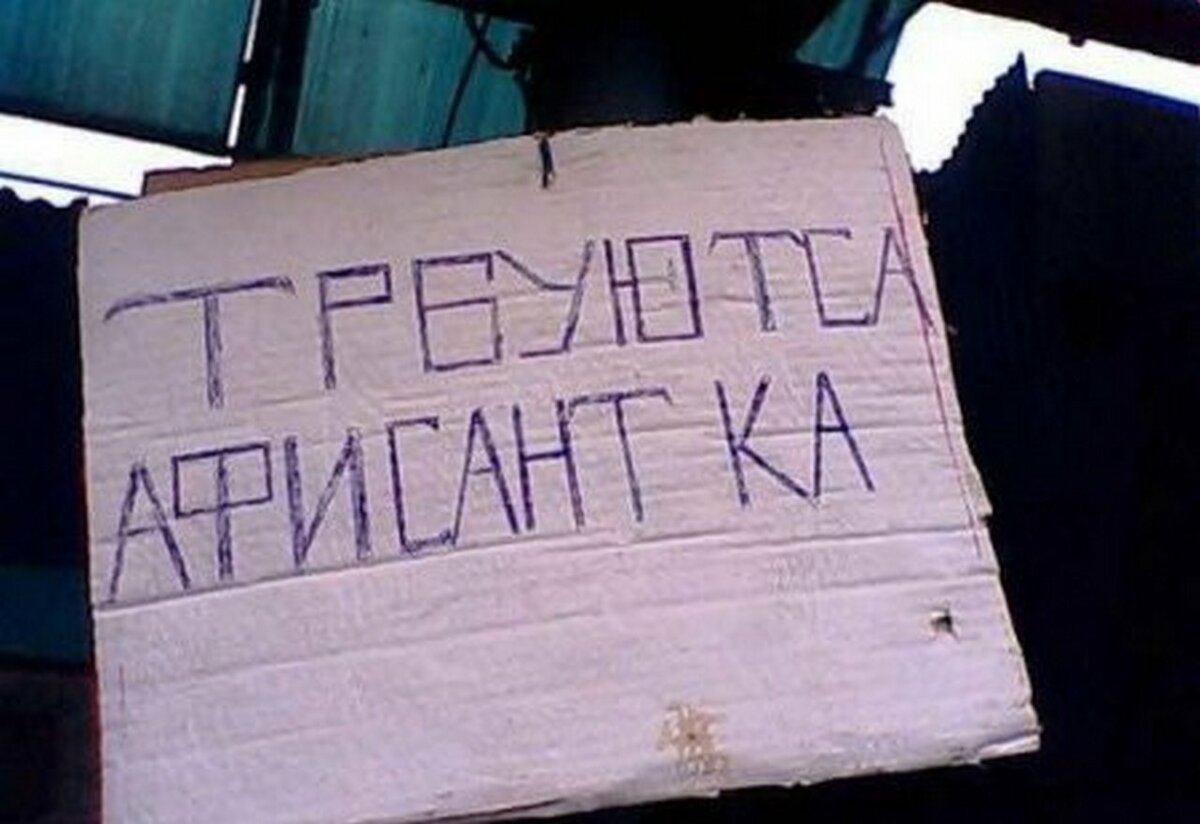 ТРБУЮТСА
АФИСАНТ КА